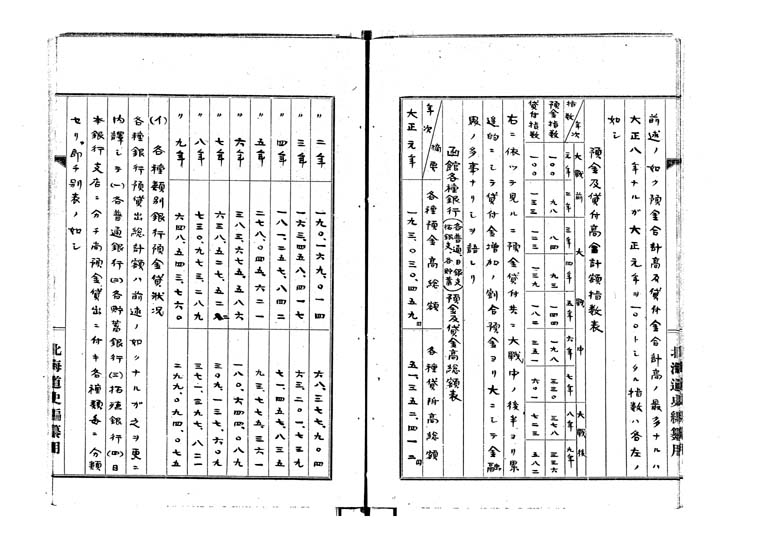 前述ノ如ク預金合計高及貸付金合計高ノ最多ナルハ
大正八年ナルガ大正元年ヲ一〇〇トシタル指数ハ各左ノ
如シ
預金及貸付高合計額指数表
指数 年次 大戦前 元年 二年 大戦中 三年 四年 五年 六年 七年 大戦後 八年 九年
預金指数 一〇〇 九八 八四 九三 一四四 一九八 三三〇 三七八 三三六
貸付指数 一〇〇 一三三 一二三 一三九 一八二 三五一 六〇一 七二三 五八二
右ニ依ツテ見ルニ預金貸付共ニ大戦中ノ後半ヨリ累
進的ニシテ貸付金増加ノ割合預金ヨリ大ニシテ金融
界ノ多事ナリシヲ語レリ
函館各種銀行(各普通、日銀支、拓銀支、各貯蓄)預金及貸金高総額表
年次 摘要 各種預金高総額 各種貸附高総額
大正元年 一九三、〇三〇、四五九円 五一、三五二、四一二円
北海道史編纂用
〃二年 一九〇、一六九、〇一四 六八、三七七、九〇四
〃三年 一六三、四五八、四一七 六三、二〇一、七三九
〃四年 一八一、二五七、八四二 七一、四五七、八三五
〃五年 二七八、〇四五、六二一 九三、七七五、三六一
〃六年 三八三、六七五、五八六 一八〇、六四四、〇八九
〃七年 六三八、五二七、五二二 三〇九、一三七、六〇九
〃八年 七三〇、九七三、二八九 三七一、三九七、八二一
〃九年 六四八、五四三、七六〇 二九九、〇四〇、〇七五
(イ)各種類別銀行預金貸状况
各種銀行預貸出総計額ハ前述ノ如クナルガ之ヲ更ニ
内譯シテ(一)各普通銀行(二)各貯蓄銀行(三)拓殖銀行(四)日
本銀行支店ニ分チ尚預金貸出ニ付キ各種類毎ニ分類
セリ、即チ別表ノ如シ
北海道史編纂用